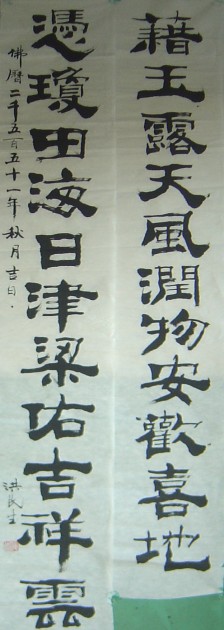 藉玉露天風潤物安歡喜地
憑瓊田海日津梁佑吉祥雲
佛曆二千五百五十一年秋月吉日.
洪民生